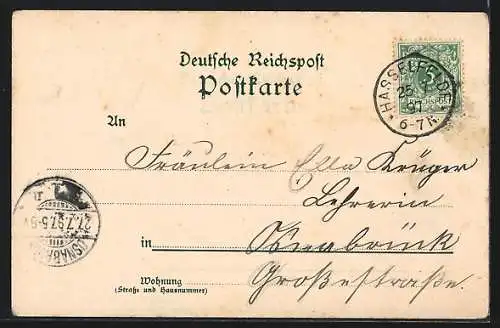 Deutsche Reichspost
Postkarte
HASSELFELDE
25 7
97
6-7 N.
An
Fräulein Ella Krüger
Lehrerin
in Osnabrück
Großestraße.
Wohnung
(Straße und Hausnummer)
27.7.97.5-6